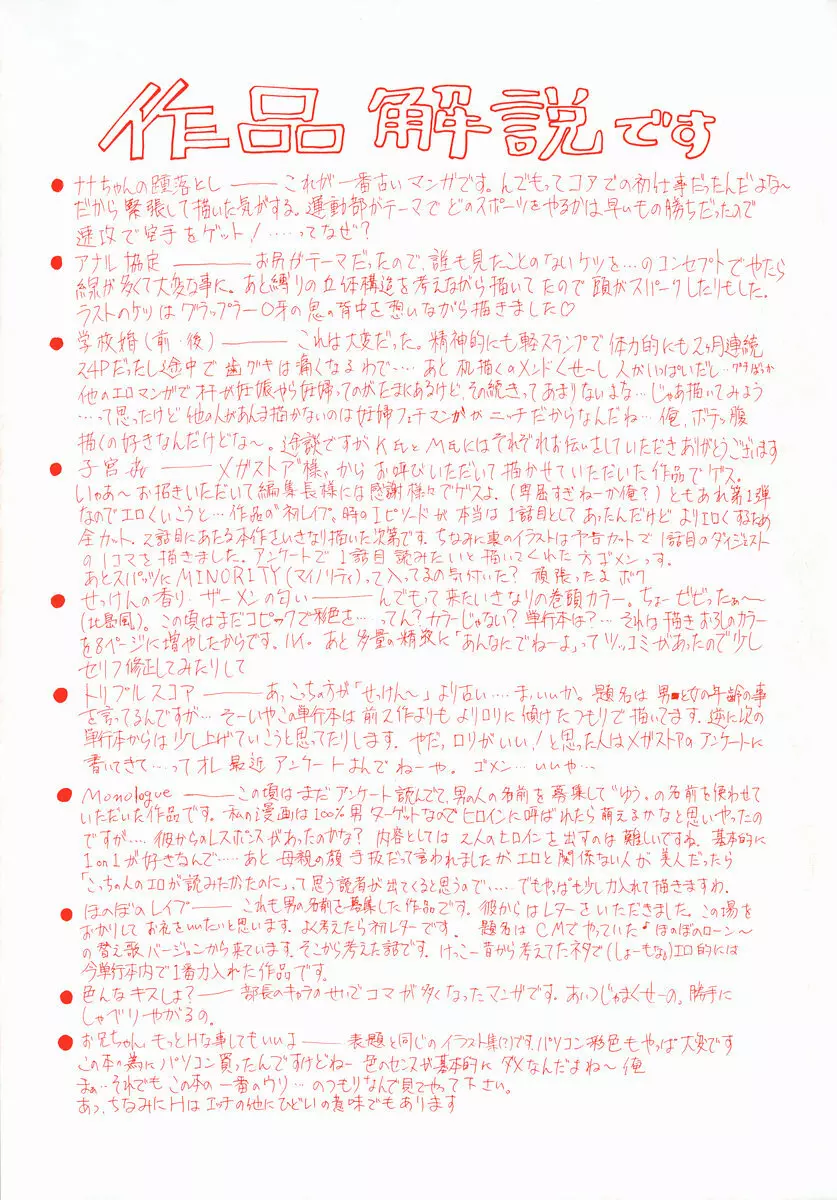 作品解説です
● ナナちゃんの堕落とし ―― これが一番古いマンガです。んでもってコアでの初仕事だったんだよな～
だから緊張して描いた気がする。運動部がテーマでどのスポーツをやるかは早いもの勝ちだったので
速攻で空手をゲット！……ってなぜ？
● アナル協定 ―― お尻がテーマだったので、誰も見たことのないケツを…のコンセプトでやたら
線が多くて大変な事に。あと縛りの立体構造を考えながら描いてたので頭がスパークしたりもした。
ラストのケツはグラップラー〇牙の鬼の背中を想いながら描きました♡
● 学校婚（前・後） ―― これは大変だった。精神的にも軽スランプで体力的にも2ヶ月連続
24Pだったし途中で歯グキは痛くなるわで…あと机描くのメンドくせーし人がいっぱいだし…グチばっか
他のエロマンガでオチが妊娠やら妊婦ってのがたまにあるけど、その続きってあまりないよな…じゃあ描いてみよう
…って思ったけど他の人があんま描かないのは妊婦フェチマンガがニッチだからなんだね…俺、ボテッ腹
描くの好きなんだけどな～。余談ですがK氏とM氏にはそれぞれお伝いをしていただきありがとうございます
● ―― メガストア"様"からお呼びいただいて描かせていただいた作品でゲス。
いやぁ～お招きいただいて編集長様には感謝様々でゲスよ。（卑屈すぎねーか俺？）ともあれ第1弾
なのでエロくいこうと…作品の"初レイプ"時のエピソードが本当は1話目としてあったんだけどよりエロくするため
全カット。2話目にあたる本作をいきなり描いた次第です。ちなみに裏のイラストは予告カットで1話目のダイジェスト
の1コマを描きました。アンケートで1話目読みたいと描いてくれた方ゴメンっす。
あとスパッツにMINORITY（マイノリティ）って入ってるの気付いた？頑張ったよボク
● せっけんの香り・ザーメンの匂い ―― んでもって来たいきなりの巻頭カラー。ちょービビったぁ～
（北島風）。この頃はまだコピックで彩色を…ってん？カラーじゃない？単行本は？…それは描きおろしのカラー
を8ページに増やしたからです。ハイ。あと多量の精液に「あんなにでねーよ」ってツッコミがあったので少し
セリフ修正してみたりして
● トリプルスコア ―― あっこっちの方が「せっけん～」より古い…まっいいか。題名は男と女の年齢の事
を言ってるんですが…そーいやこの単行本は前2作よりもよりロリに傾けたつもりで描いてます。逆に次の
単行本からは少し上げていこうと思ってたりします。やだ、ロリがいい！と思った人はメガストアのアンケートに
書いてきて…ってオレ最近アンケートよんでねーや。ゴメン…いいや…
● Monologue ―― この頃はまだアンケート読んでて、男の人の名前を募集して"ゆう"の名前を使わせて
いただいた作品です。私の漫画は100％男ターゲットなのでヒロインに呼ばれたら萌えるかなと思いやったの
ですが…彼からのレスポンスがあったのかな？内容としては2人のヒロインを出すのは難しいですね。基本的に
1on1が好きなんで…あと母親の顔手抜だって言われましたがエロと関係ない人が美人だったら
「こっちの人のエロが読みたかったのに」って思う読者が出てくると思うので……でもやっぱも少し力入れて描きますわ。
● ほのぼのレイプ ―― これも男の名前を募集した作品です。彼からはレターをいただきました。この場を
おかりしてお礼をいいたいと思います。よく考えたら初レターです。題名はCMでやっていた「ほのぼのローン～
の替え歌バージョンから来ています。そこから考えた話です。けっこー昔から考えてたネタで（しょーもな）エロ的には
今単行本内で1番力入れた作品です。
● 色んなキスしよ？ ―― 部長のキャラのせいでコマが多くなったマンガです。あいつじゃまくせーの。勝手に
しゃべりやがるの。
● お兄ちゃん、もっとHな事してもいいよ ―― 表題と同じのイラスト集(?)です。パソコン彩色もやっぱ大変です
この本の為にパソコン買ったんですけどねー色のセンスが基本的にダメなんだよね～俺
まぁ…それでもこの本の一番のウリ…のつもりなんで見てやって下さい。
あっ、ちなみにHはエッチの他にひどいの意味でもあります